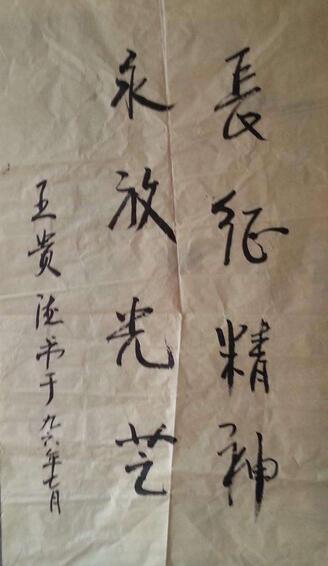 長征精神
永放光芒
王贵德书于九六年七月